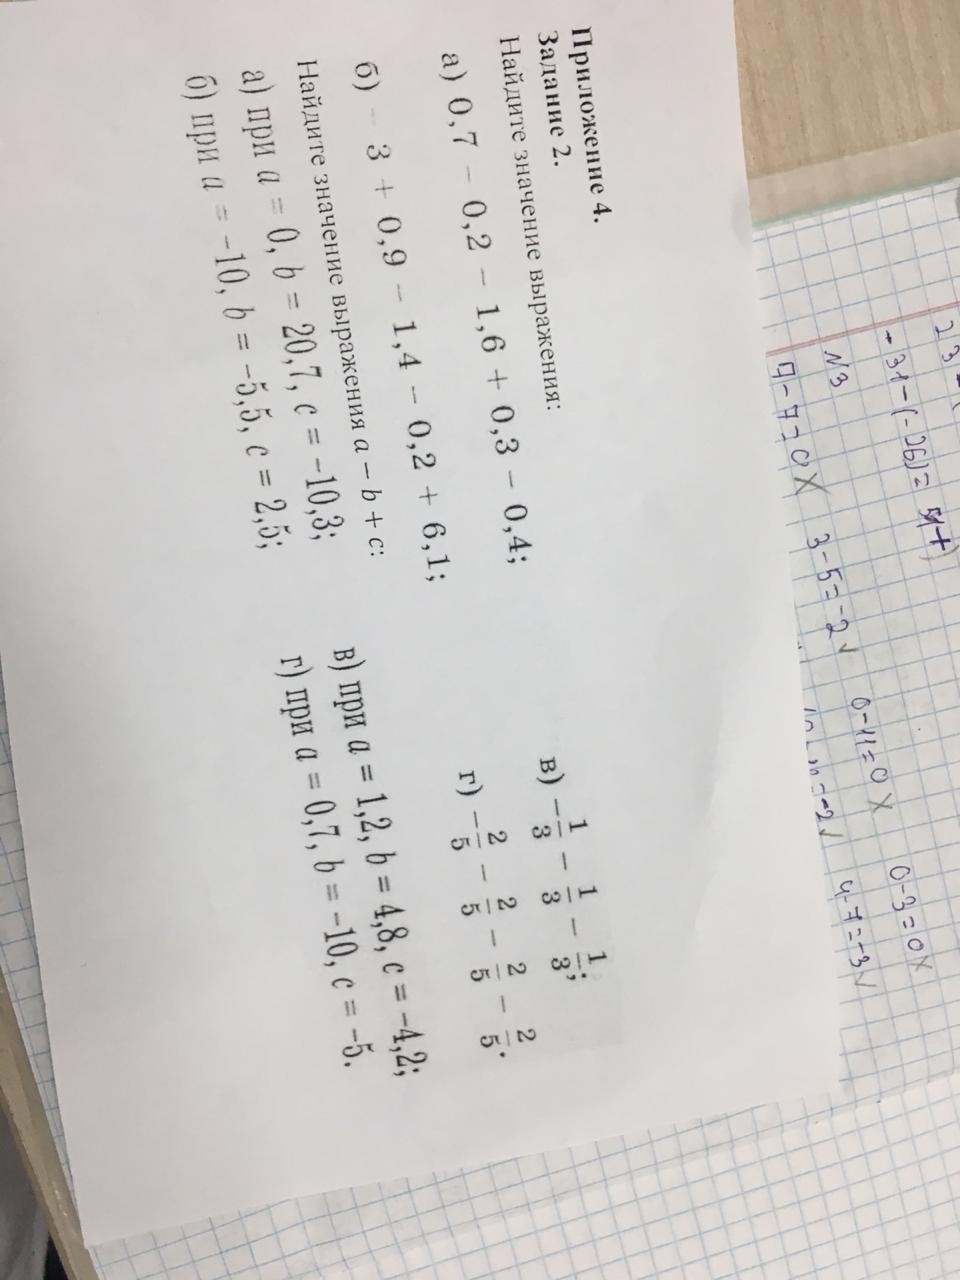 Приложение 4.
Задание 2.
Найдите значение выражения:
а) 0,7 − 0,2 − 1,6 + 0,3 − 0,4;
б) − 3 + 0,9 − 1,4 − 0,2 + 6,1;
в) −1/3 − 1/3 − 1/3;
г) −2/5 − 2/5 − 2/5 − 2/5.
Найдите значение выражения a − b + c:
а) при a = 0, b = 20,7, c = −10,3;
б) при a = −10, b = −5,5, c = 2,5;
в) при a = 1,2, b = 4,8, c = −4,2;
г) при a = 0,7, b = −10, c = −5.
23
- 31-(-26)=
N3
7-7=0 X 3-5=-2 ✓ 0-11=0 X 0-3=0 X
=-2 ✓ 4-7=-3 ✓